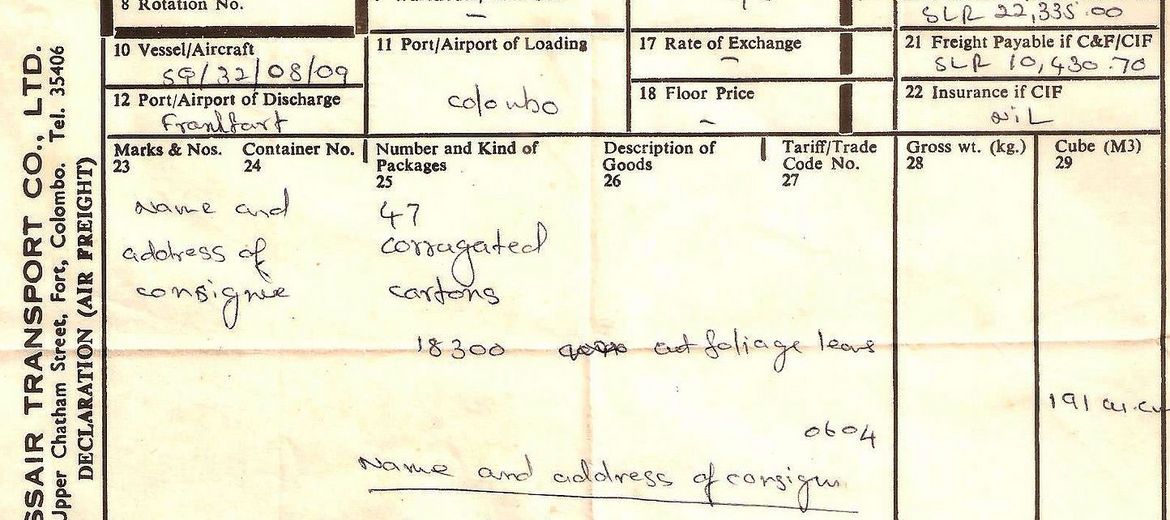 8 Rotation No.
SLR 22,335.00
10 Vessel/Aircraft
SQ/32/08/09
11 Port/Airport of Loading
colombo
17 Rate of Exchange
21 Freight Payable if C&F/CIF
SLR 10,430.70
12 Port/Airport of Discharge
Frankfart
18 Floor Price
22 Insurance if CIF
NiL
Marks & Nos.
23
Container No.
24
Number and Kind of
Packages
25
Description of
Goods
26
Tariff/Trade
Code No.
27
Gross wt. (kg.)
28
Cube (M3)
29
Name and
address of
consignee
47
corragated
cartons
18300 cut foliage leavs
191
0604
Name and address of
SSAIR TRANSPORT CO., LTD.
Upper Chatham Street, Fort, Colombo. Tel. 35406
DECLARATION (AIR FREIGHT)